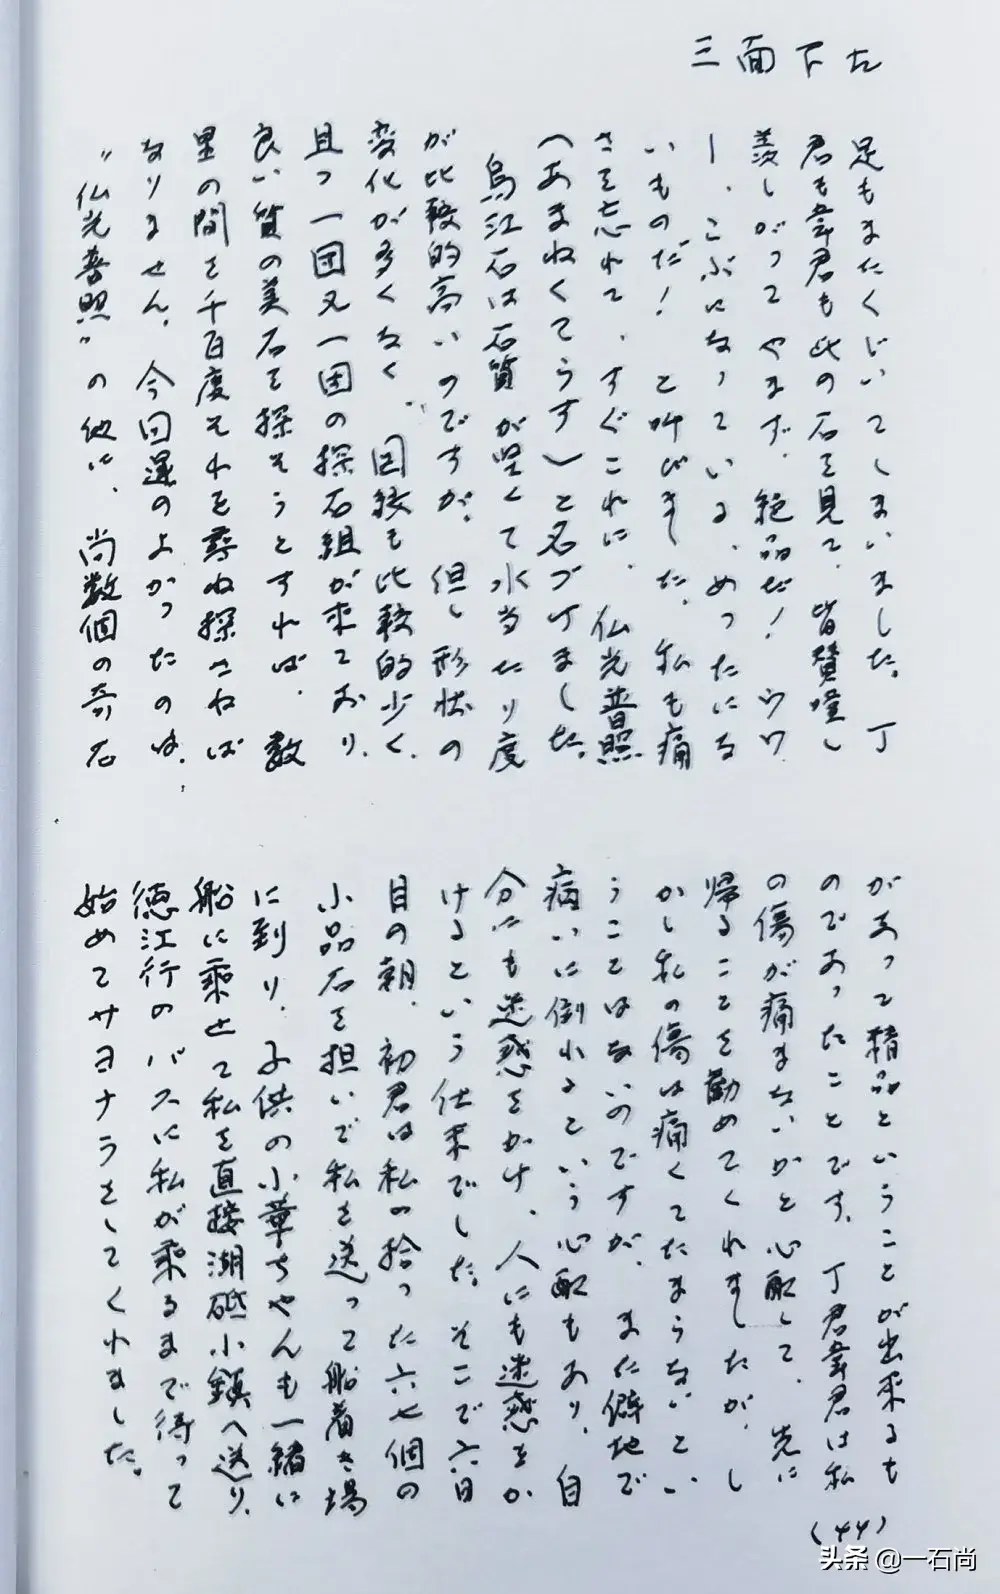 三面下左
足もまたくじいてしまいました。丁
君も韋君も此の石を見て、皆賛嘆し
羨しがってやまず、絶品だ！ウワ
ー、こぶになっている、めったにな
いものだ！と叫びました。私も痛
さを忘れて、すぐこれに、仏光普照
（あまねくてらす）と名づけました。
烏江石は石質が堅くて水当たり度
が比較的高いのですが、但し形状の
変化が多くなく、図紋も比較的少く、
且つ一団又一団の探石組が来ており、
良い質の美石を探そうとすれば、数
里の間を千百度それを尋ね探さねば
なりません。今回運のよかったのは、
"仏光普照"の他に、尚数個の奇石
があって精品ということが出来るも
のであったことです。丁君韋君は私
の傷が痛まないかと心配して、先に
帰ることを勧めてくれましたが、し
かし私の傷は痛くてたまらないとい
うことはないのですが、また僻地で
病いに倒れるという心配もあり、自
分にも迷惑をかけ、人にも迷惑をか
けるという仕末でした。そこで六日
目の朝、初君は私の拾った六七個の
小品石を担いで私を送って船着き場
に到り、子供の小華ちゃんも一緒に
船に乗せて私を直接湖砥小鎮へ送り、
徳江行のバスに私が乗るまで待って
始めてサヨナラをしてくれました。
(44)
头条 @一石尚